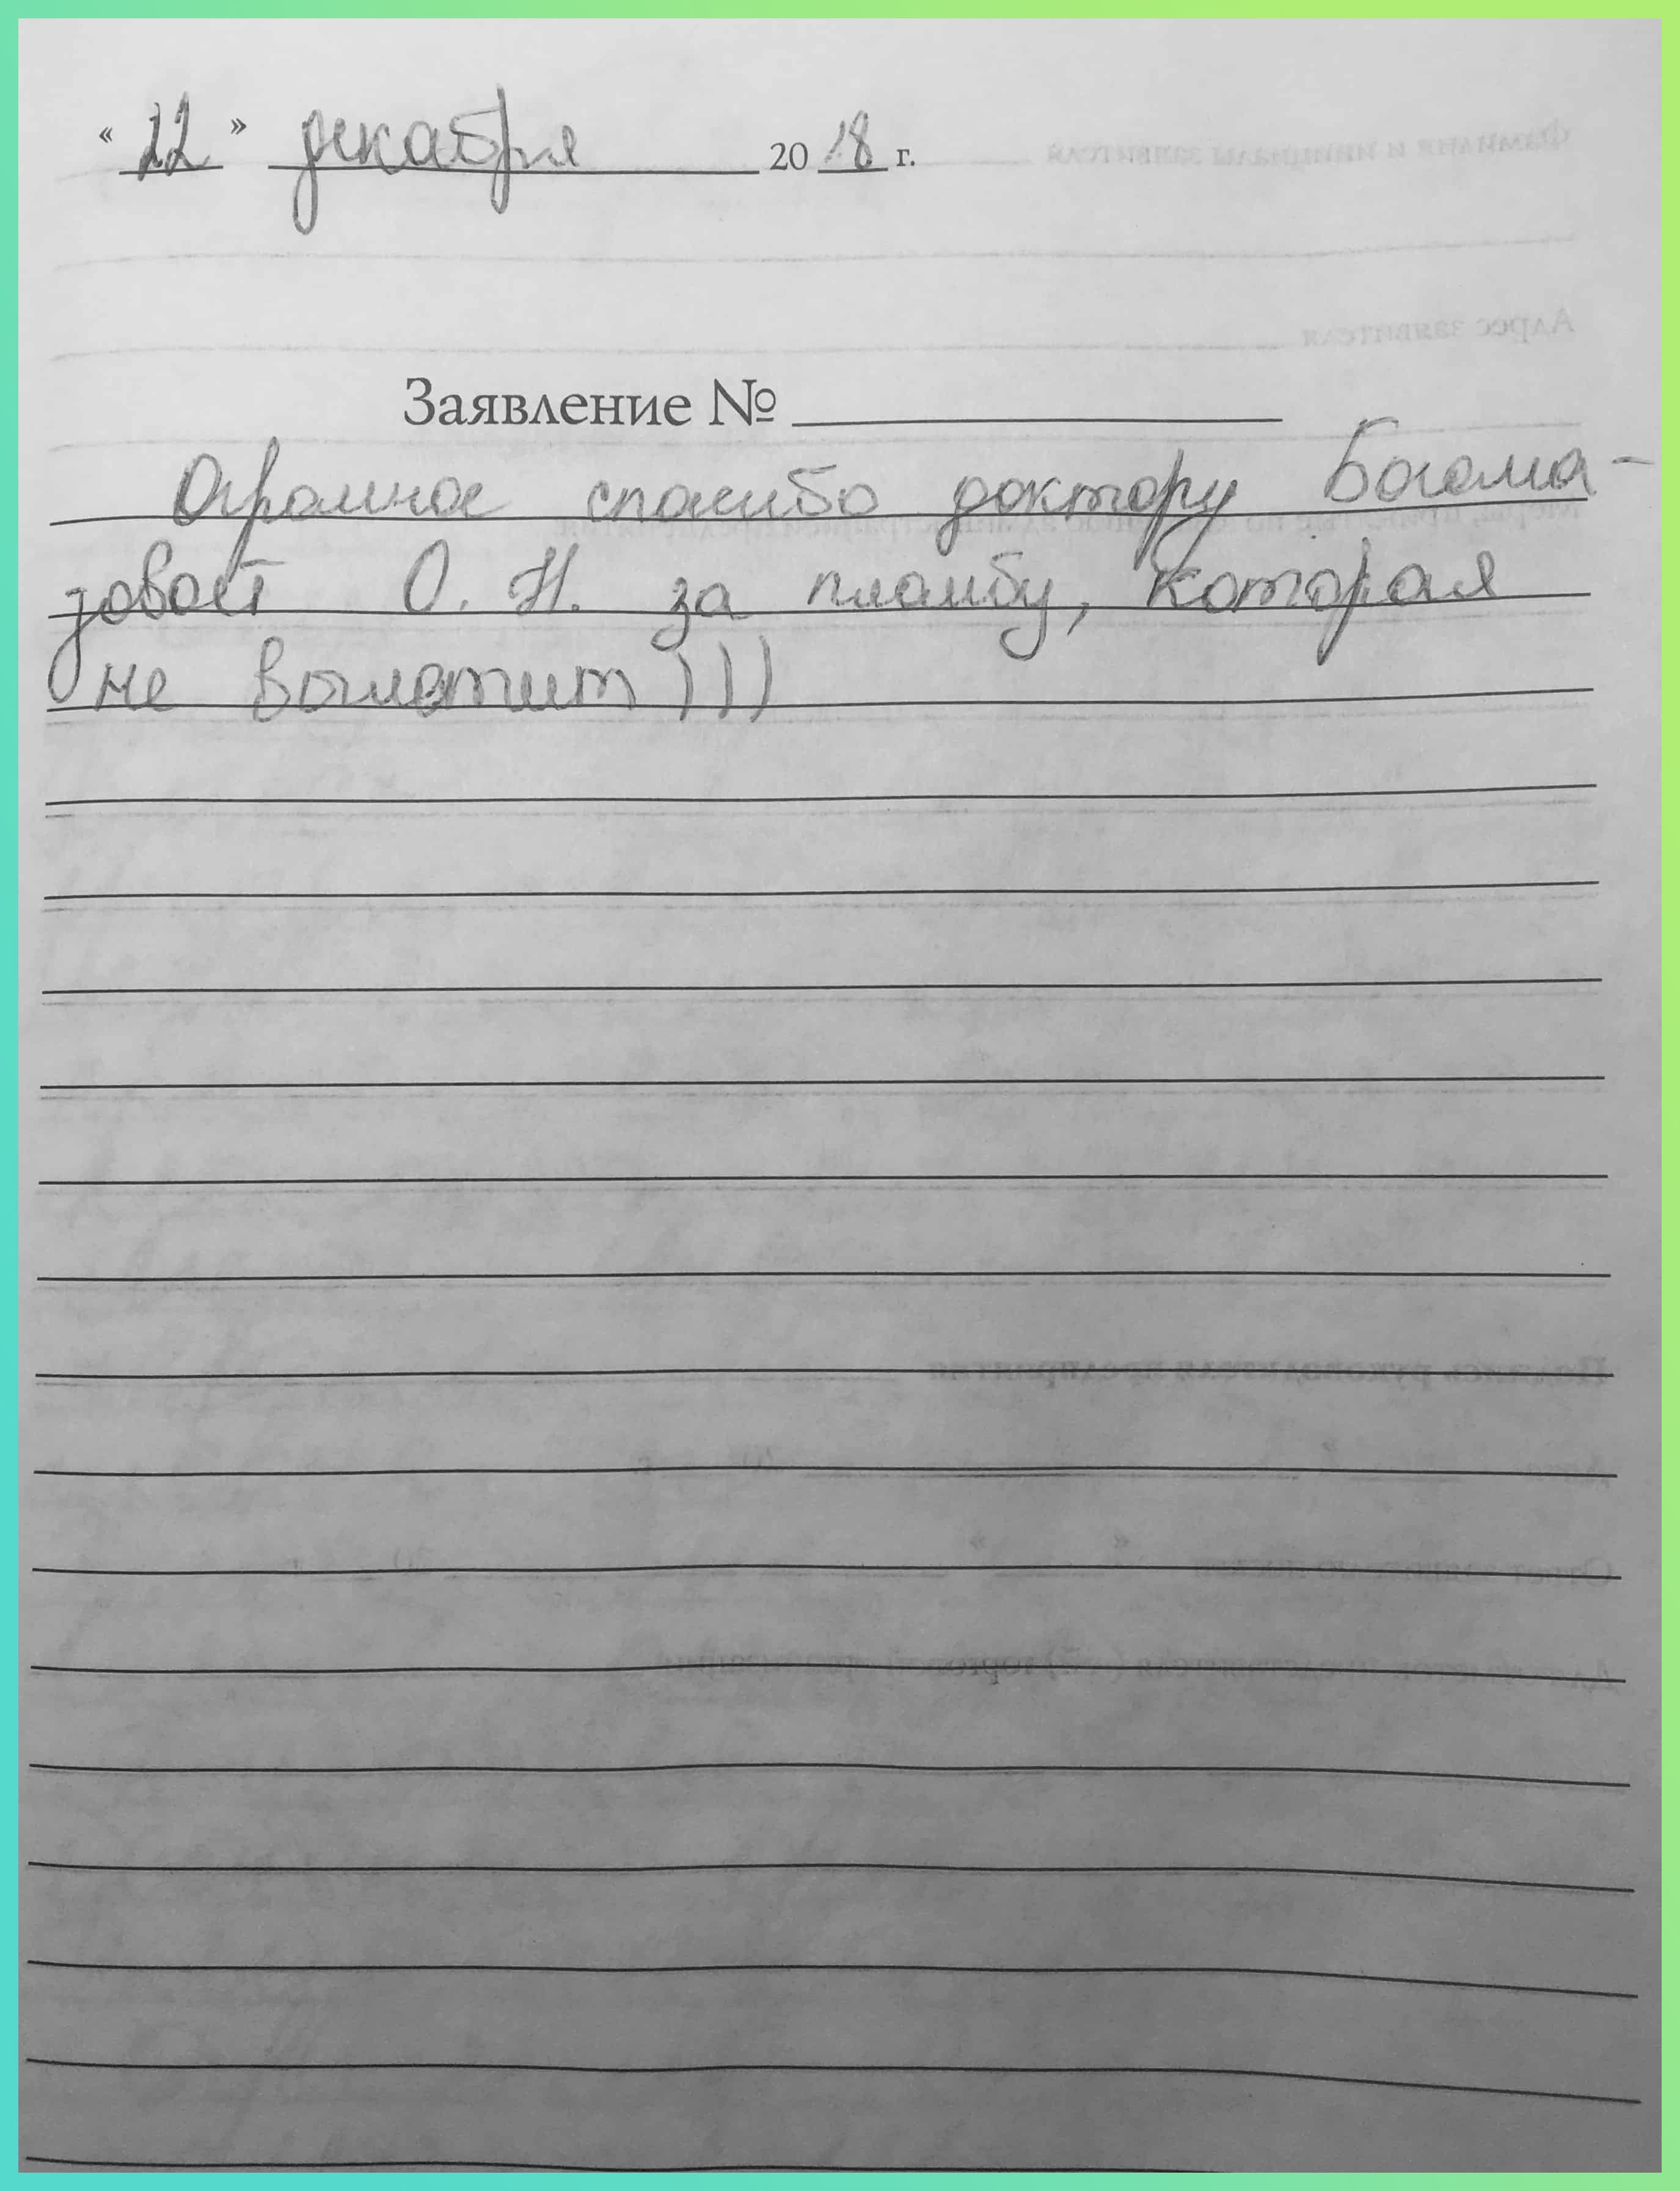 « 22 » декабря 2018 г.
Заявление №
Огромное спасибо доктору Богома-
зовой О. Н. за пломбу, которая
не вылетит )))